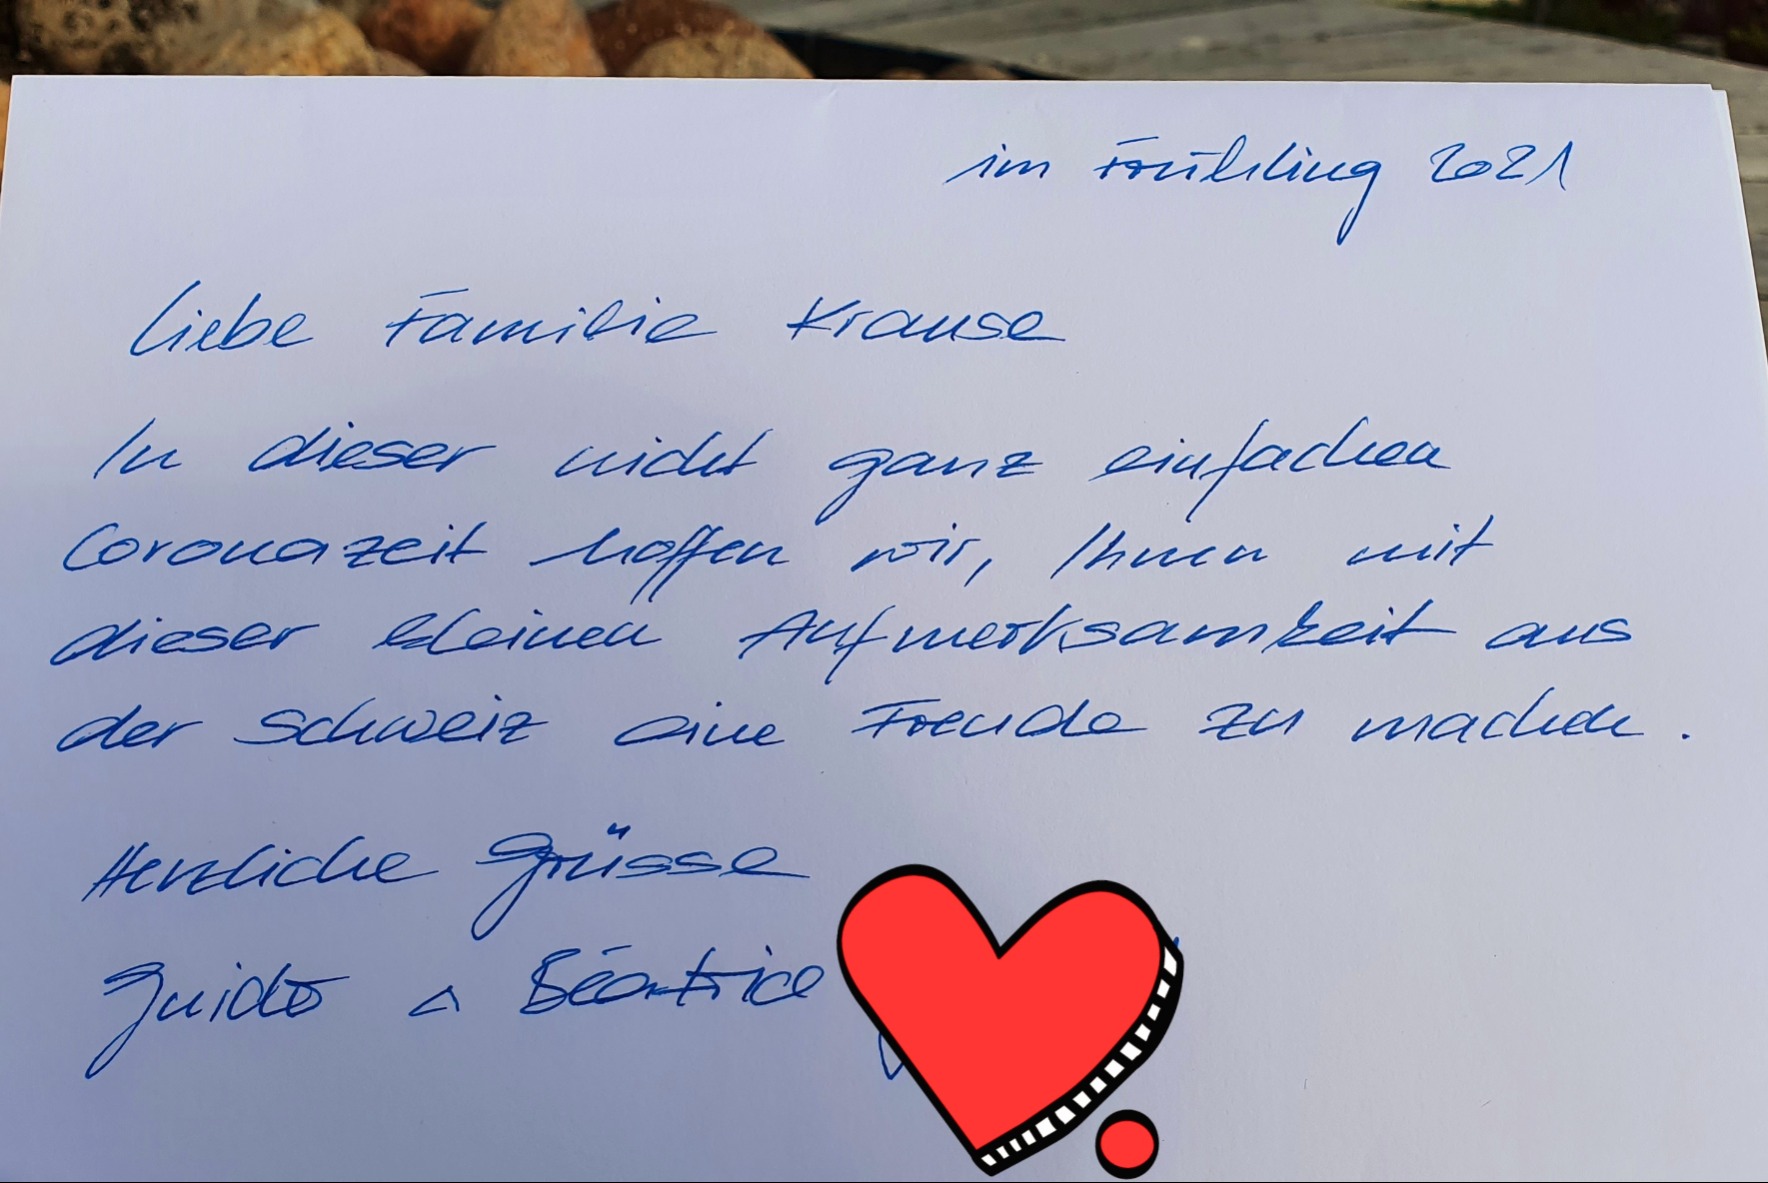 im Frühling 2021
Liebe Familie Krause
In dieser nicht ganz einfachen
Coronazeit hoffen wir, Ihnen mit
dieser kleinen Aufmerksamkeit aus
der Schweiz eine Freude zu machen.
Herzliche Grüsse
Guido & Béatrice